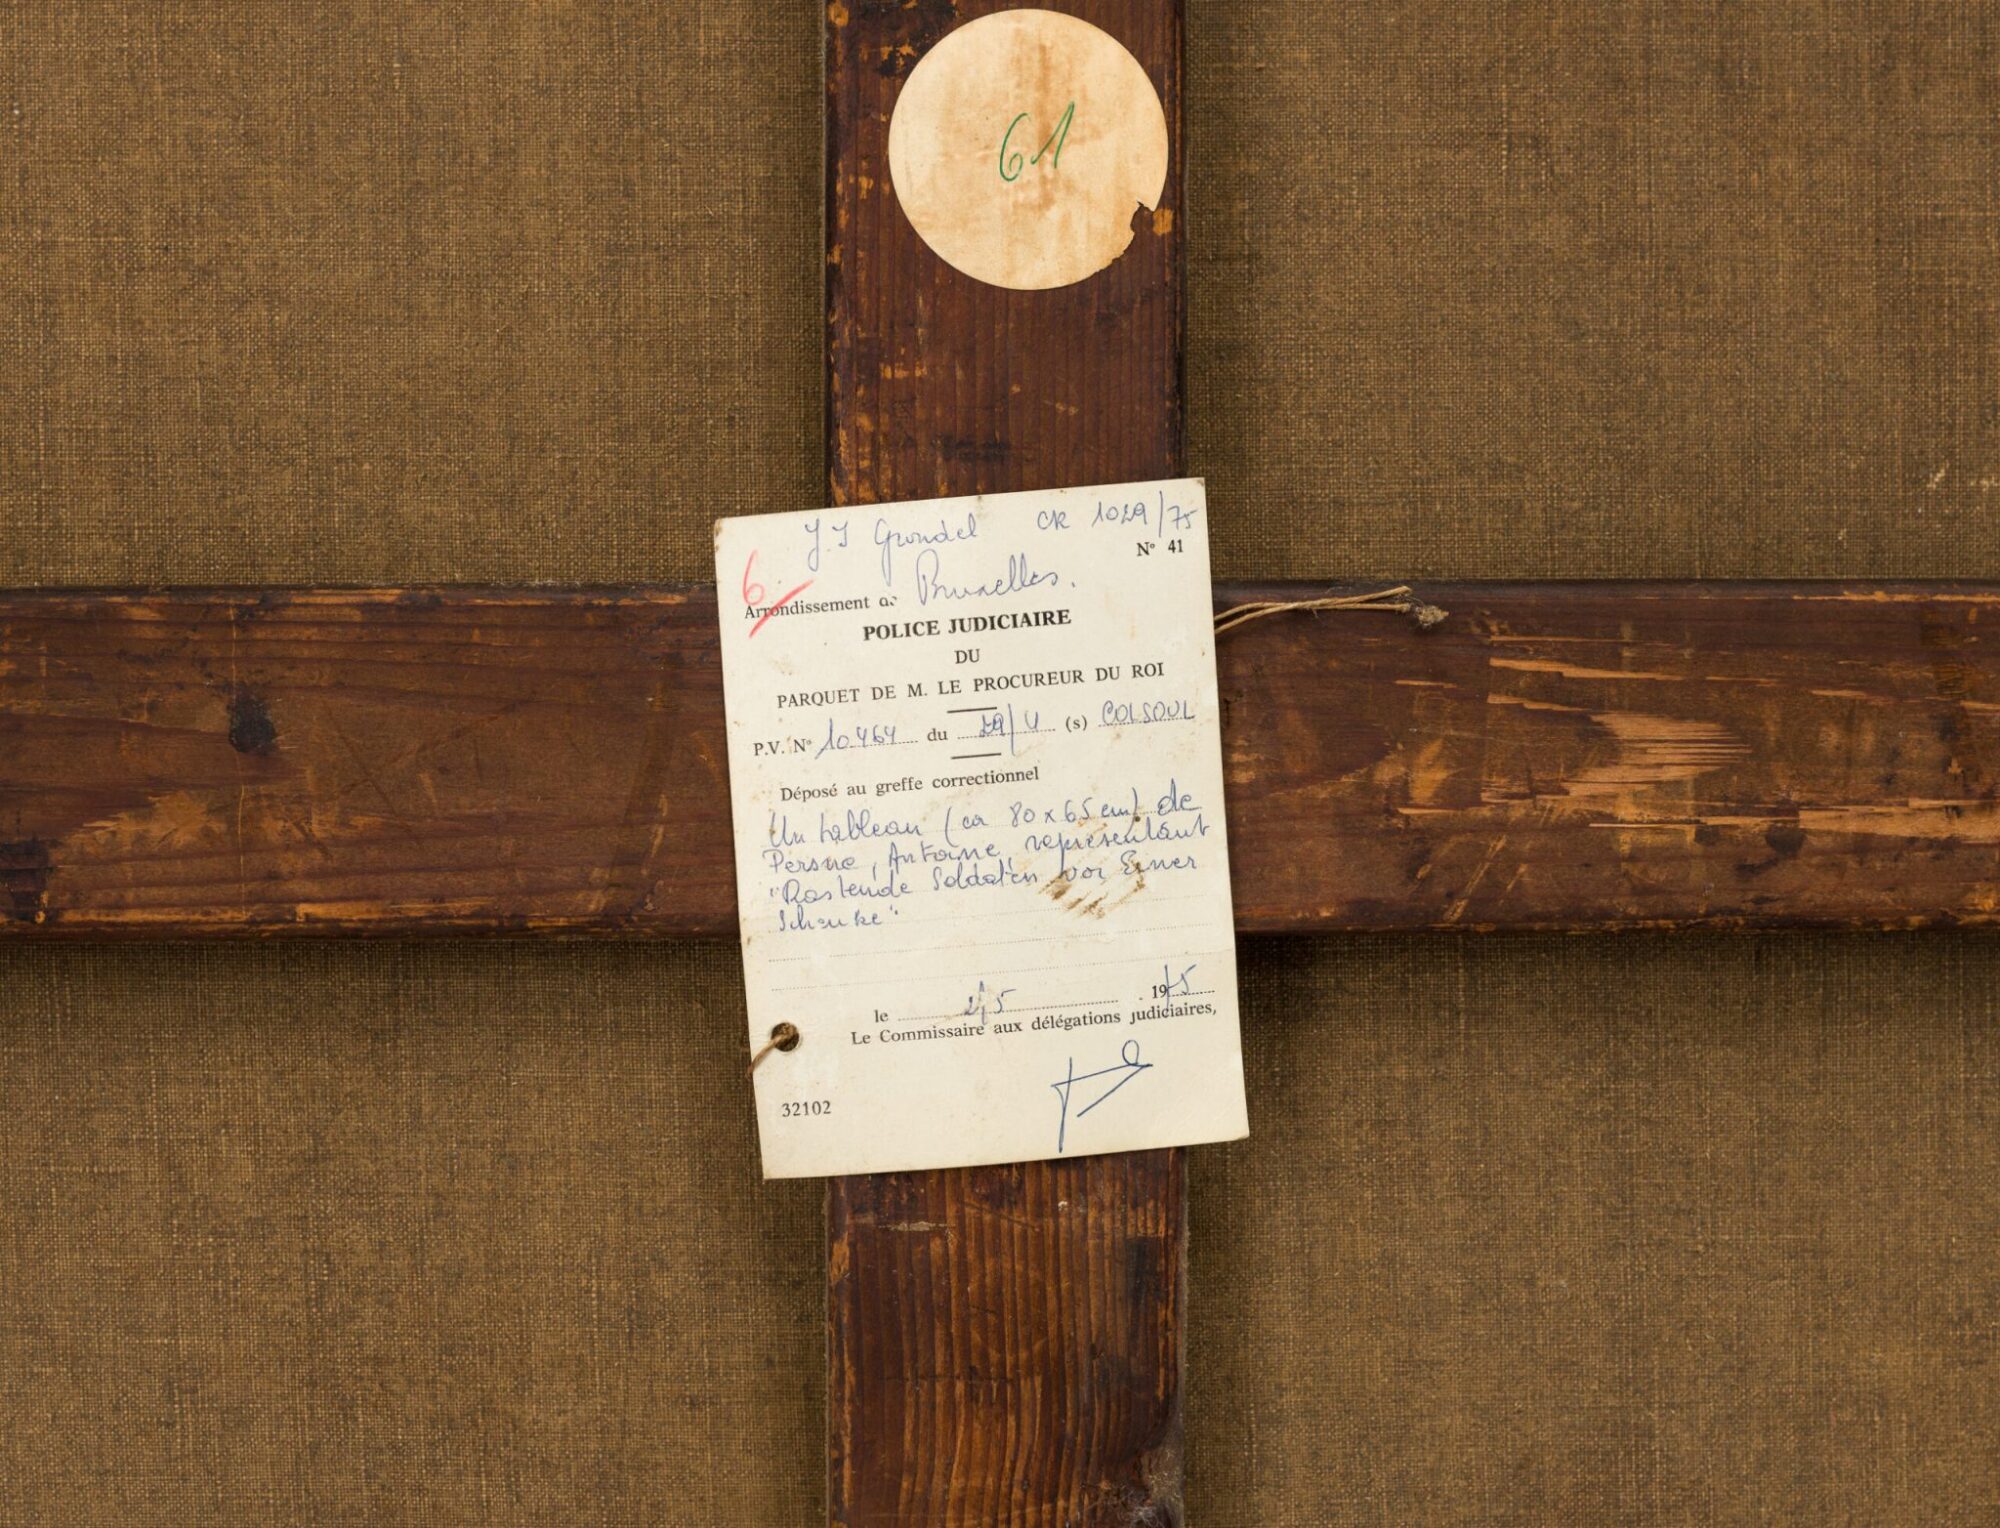 61
J.I Grondel CR 1029/75
N° 41
6.
Arrondissement de Bruxelles.
POLICE JUDICIAIRE
DU
PARQUET DE M. LE PROCUREUR DU ROI
P.V. N° 10464 du 29/4 (s) COLSOUL
Déposé au greffe correctionnel
Un tableau (ca 80 x 65 cm) de
Pesne, Antoine, representant
"Rastende Soldaten vor Einer
Schenke"
le 2/5 1975
Le Commissaire aux délégations judiciaires,
32102